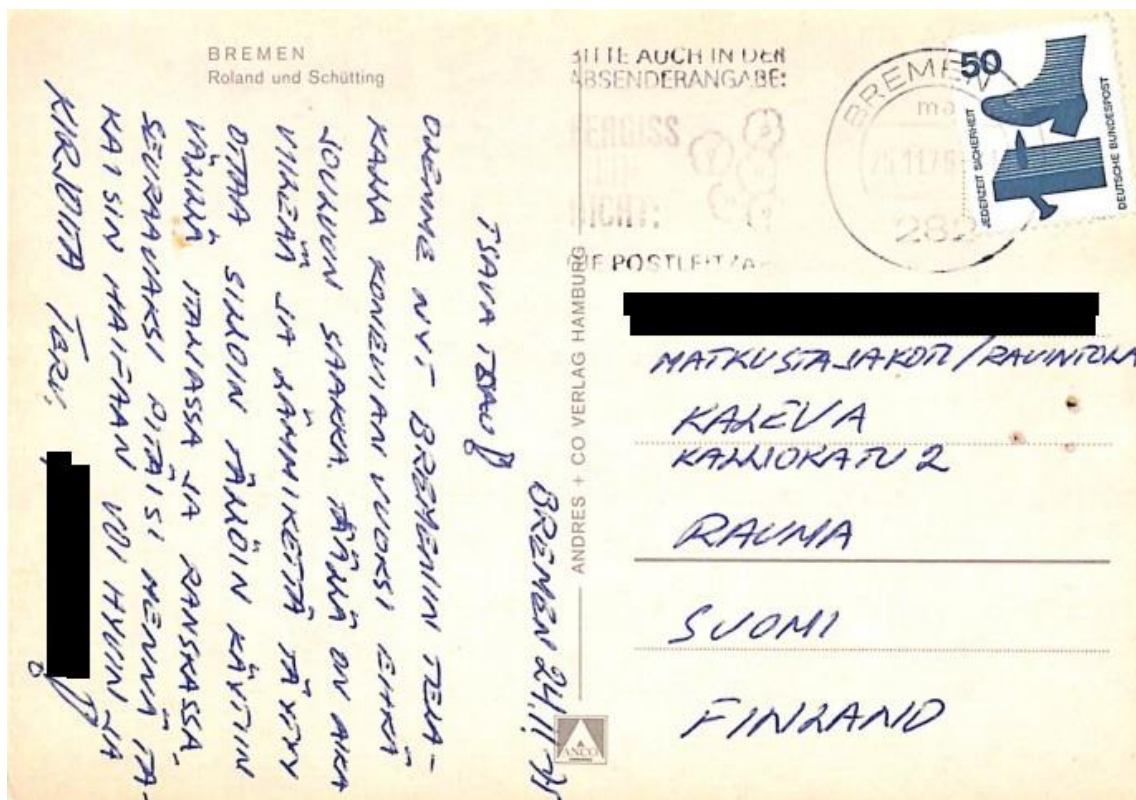 BREMEN
Roland und Schütting
BITTE AUCH IN DER
ABSENDERANGABE:
VERGISS
NICHT:
DIE POSTLEITZA
BREMEN
ma
282
50
JEDERZEIT SICHERHEIT
DEUTSCHE BUNDESPOST
BREMEN 24.11.75
OLEMME NYT BREMENIN TELA-
KALLA KONEVIAN VUOKSI EHKÄ
JOULUUN SAAKKA. TÄÄLLÄ ON AIKA
JA LÄMMIKETTÄ TÄYTYY
OTTAA SILLOIN TÄLLÖIN KÄYTIIN
VÄLILLÄ ITALIASSA JA RANSKASSA,
SEURAAVAKSI PITÄISI MENNÄ TA-
KAISIN HAIFAAN VOI HYVIN JA
KIRJOITA TERV.
ANDRES + CO VERLAG HAMBURG
ANCO
MATKUSTAJAKOTI/RAVINTOLA
KALEVA
KALLIOKATU 2
RAUMA
SUOMI
FINLAND